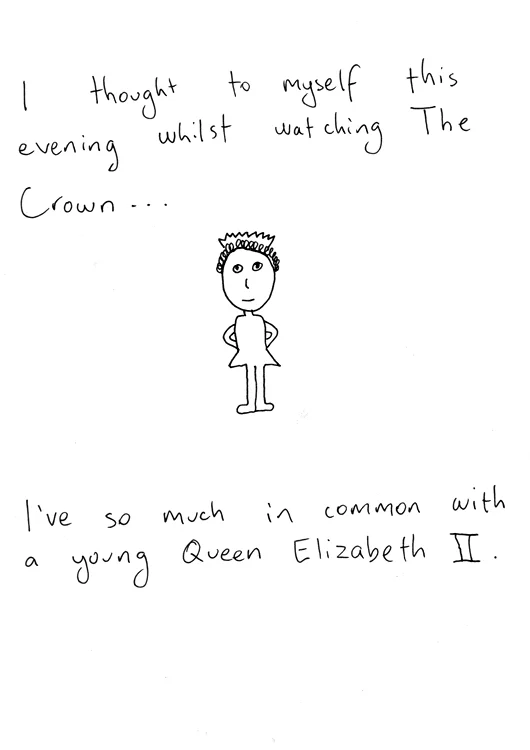 I thought to myself this
evening whilst watching The
Crown...
I've so much in common with
a young Queen Elizabeth II.